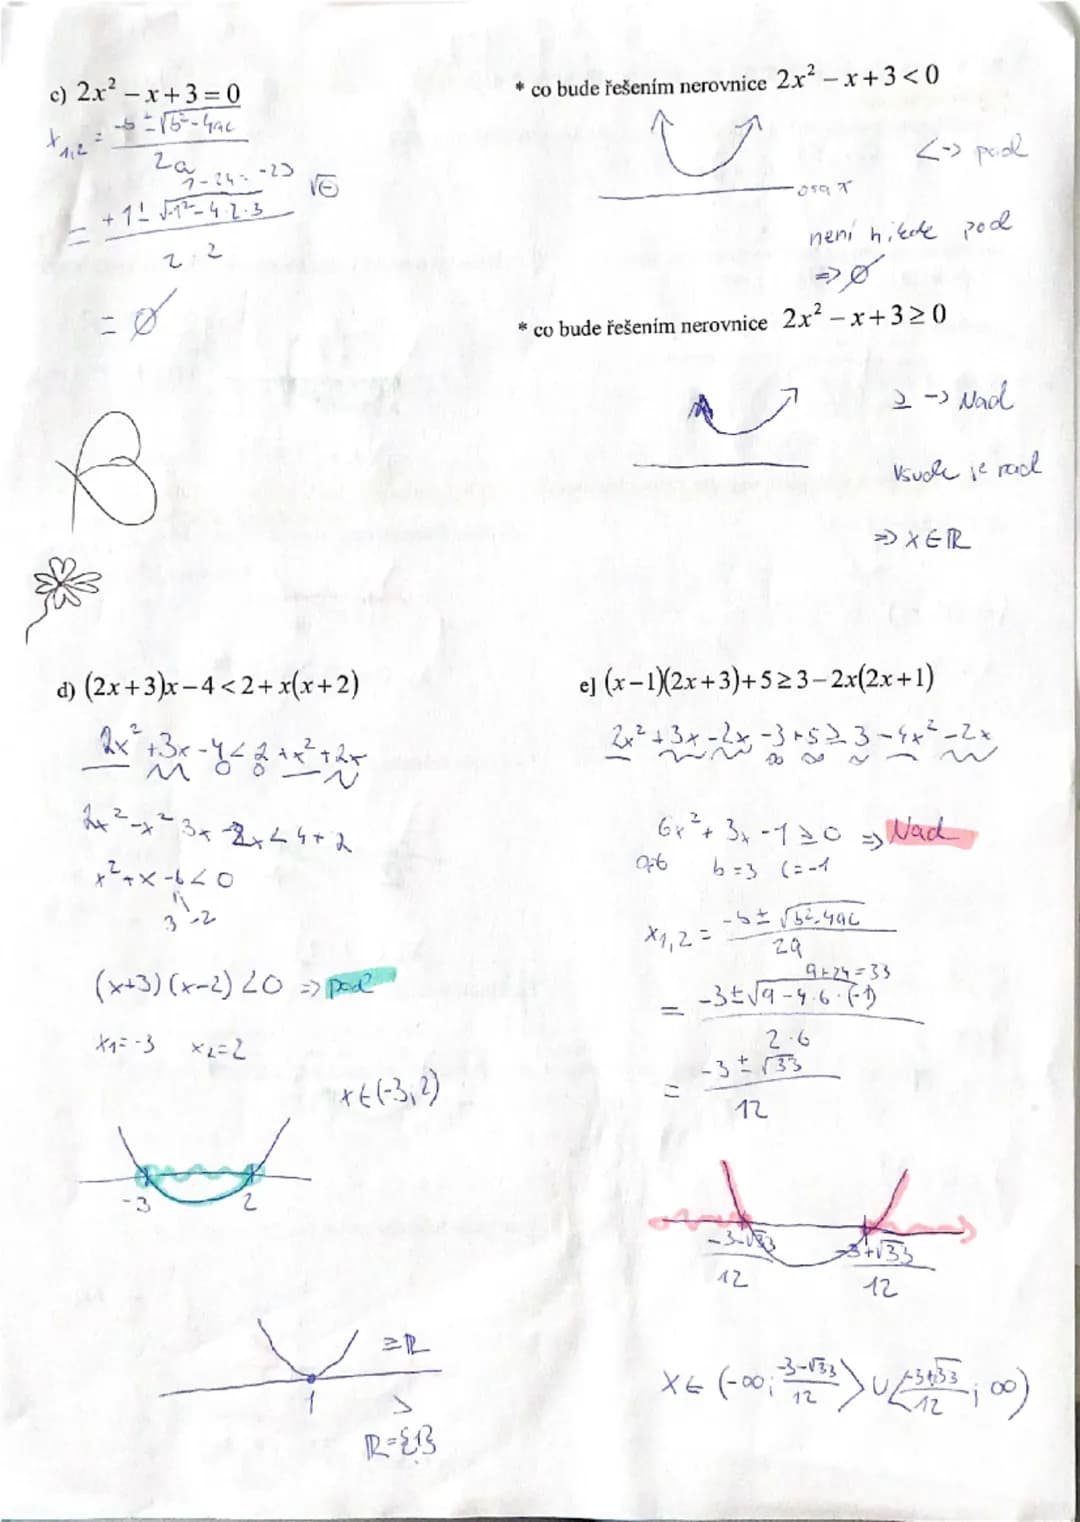 c) 2x² − x + 3 = 0
x₁,₂ = (-b ± √(b²-4ac)) / 2a
1-24 = -23
√⊖
= (+1 ± √(-1²-4·2·3)) / (2·2)
= ∅
* co bude řešením nerovnice 2x² − x + 3 < 0
< -> pod
osa x
není nikde pod
=> ∅
* co bude řešením nerovnice 2x² − x + 3 ≥ 0
≥ -> Nad
Všude je nad
=> x ∈ ℝ
d) (2x+3)x − 4 < 2 + x(x+2)
2x² + 3x - 4 < 2 + x² + 2x
2x² - x² 3x - 2x < 4 + 2
x² + x - 6 < 0
3 -2
(x+3)(x-2) < 0 => pod
x₁ = -3 x₂ = 2
x ∈ (-3; 2)
-3 2
≥ ℝ
1 >
ℝ = {1}
e] (x−1)(2x+3) + 5 ≥ 3 − 2x(2x+1)
2x² + 3x - 2x - 3 + 5 ≥ 3 - 4x² - 2x
6x² + 3x - 1 ≥ 0 => Nad
b = 3 c = -1
x₁,₂ = (-b ± √(b²-4ac)) / 2a
9+24 = 33
= (-3 ± √(9 - 4·6·(-1))) / (2·6)
= (-3 ± √33) / 12
(-3-√33) / 12 (-3+√33) / 12
x ∈ (-∞; (-3-√33)/12⟩ ∪ ⟨(-3+√33)/12; ∞)